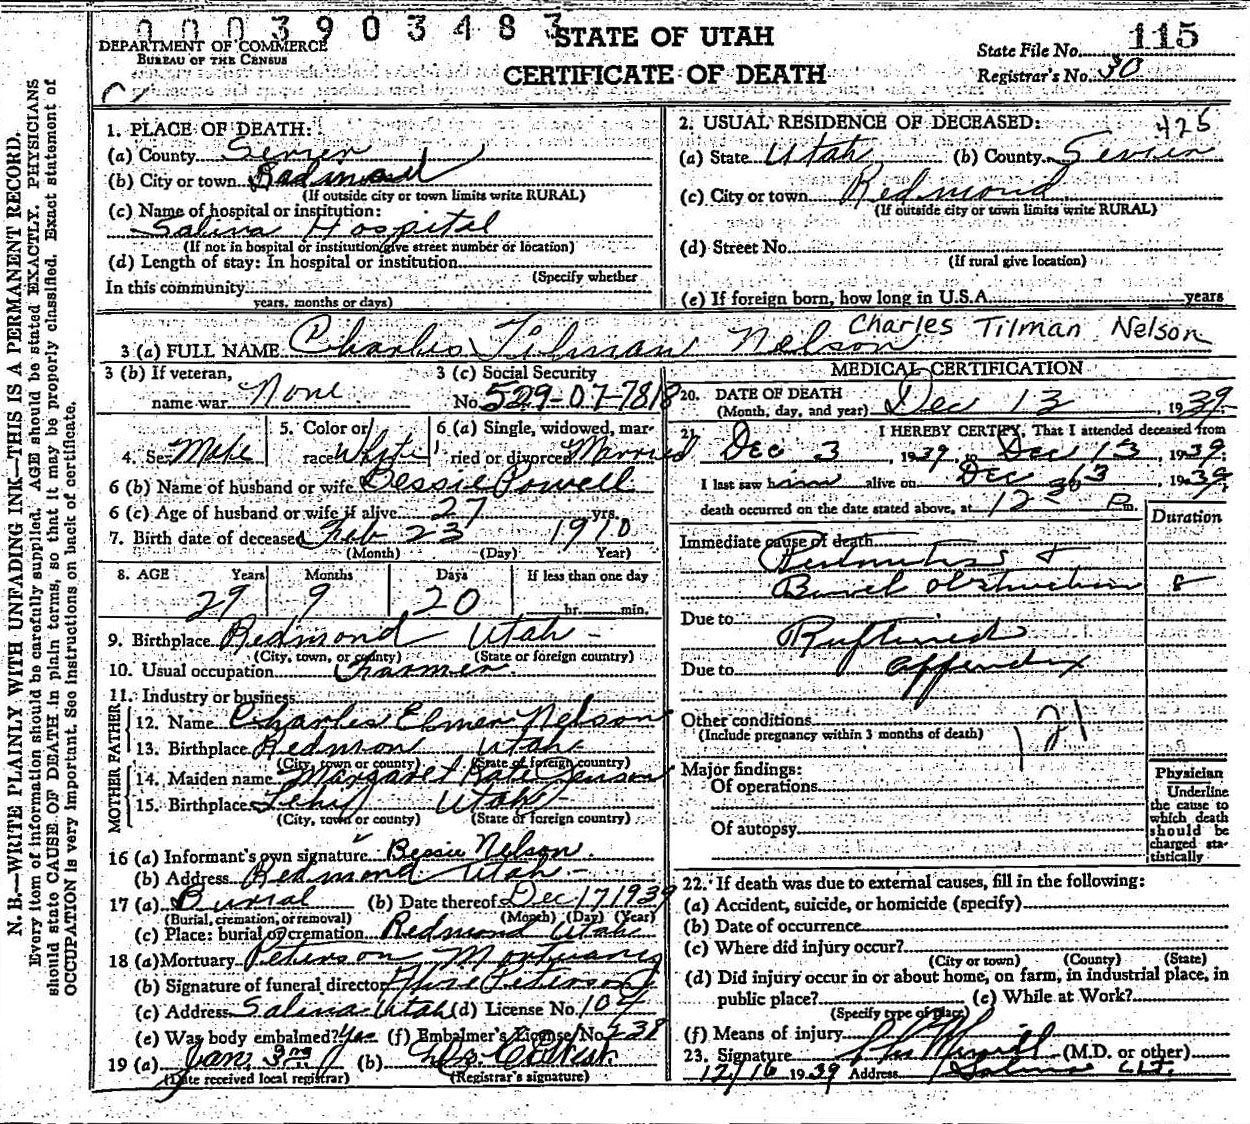 0003903483
STATE OF UTAH
CERTIFICATE OF DEATH
DEPARTMENT OF COMMERCE
BUREAU OF THE CENSUS
State File No. 115
Registrar's No. 30
N. B.—WRITE PLAINLY WITH UNFADING INK—THIS IS A PERMANENT RECORD.
Every item of information should be carefully supplied. AGE should be stated EXACTLY. PHYSICIANS
should state CAUSE OF DEATH in plain terms, so that it may be properly classified. Exact statement of
OCCUPATION is very important. See instructions on back of certificate.
1. PLACE OF DEATH:
(a) County Sevier
(b) City or town Redmond
(If outside city or town limits write RURAL)
(c) Name of hospital or institution:
Salina Hospital
(If not in hospital or institution give street number or location)
(d) Length of stay: In hospital or institution
(Specify whether
In this community
years, months or days)
2. USUAL RESIDENCE OF DECEASED: 425
(a) State Utah (b) County Sevier
(c) City or town Redmond
(If outside city or town limits write RURAL)
(d) Street No.
(If rural give location)
(e) If foreign born, how long in U.S.A. years
3 (a) FULL NAME Charles Tilman Nelson Charles Tilman Nelson
3 (b) If veteran,
name war None
3 (c) Social Security
No. 529-07-7818
4. Sex Male
5. Color or
race White
6 (a) Single, widowed, mar-
ried or divorced Married
6 (b) Name of husband or wife Bessie Powell
6 (c) Age of husband or wife if alive 27 yrs.
7. Birth date of deceased Feb 23 1910
(Month) (Day) Year)
8. AGE Years Months Days If less than one day
29 9 20 hr. min.
9. Birthplace Redmond Utah
(City, town, or county) (State or foreign country)
10. Usual occupation Farmer
11. Industry or business
FATHER
12. Name Charles Elmer Nelson
13. Birthplace Redmon Utah
(City, town or county) (State or foreign country)
MOTHER
14. Maiden name Margaret Kate Jenson
15. Birthplace Lehi Utah
(City, town or county) (State or foreign country)
16 (a) Informant's own signature Bessie Nelson
(b) Address Redmond Utah
17 (a) Burial (b) Date thereof Dec 17 1939
(Burial, cremation, or removal) (Month) (Day) (Year)
(c) Place: burial or cremation Redmond Utah
18 (a) Mortuary Peterson Mortuary
(b) Signature of funeral director Peterson
(c) Address Salina Utah (d) License No. 107
(e) Was body embalmed? Yes (f) Embalmer's License No. 238
19 (a) Jan. 3rd (b)
(Date received local registrar) (Registrar's signature)
MEDICAL CERTIFICATION
20. DATE OF DEATH
(Month, day, and year) Dec 13, 1939
21. I HEREBY CERTIFY, That I attended deceased from
Dec 3, 1939, to Dec 13, 1939.
I last saw him alive on Dec 13, 1939,
death occurred on the date stated above, at 12 30 P m.
Duration
Immediate cause of death
Peritonitis &
Bowel obstruction 8
Due to
Ruptured
Due to appendix
Other conditions
(Include pregnancy within 3 months of death)
121
Major findings:
Of operations
Of autopsy
Physician
Underline
the cause to
which death
should be
charged sta-
tistically
22. If death was due to external causes, fill in the following:
(a) Accident, suicide, or homicide (specify)
(b) Date of occurrence
(c) Where did injury occur?
(City or town) (County) (State)
(d) Did injury occur in or about home, on farm, in industrial place, in
public place? (e) While at Work?
(Specify type of place)
(f) Means of injury
23. Signature (M.D. or other)
12/16 1939 Address Salina